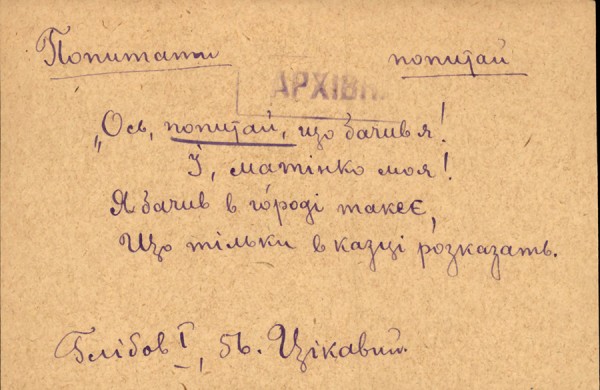 Попитати попитай
АРХІВН
„Ось, попитай, що бачив я!
І, матінко моя!
Я бачив в городі такеє,
Що тільки в казці розказать.
Глібов І, 56. Цікавий.